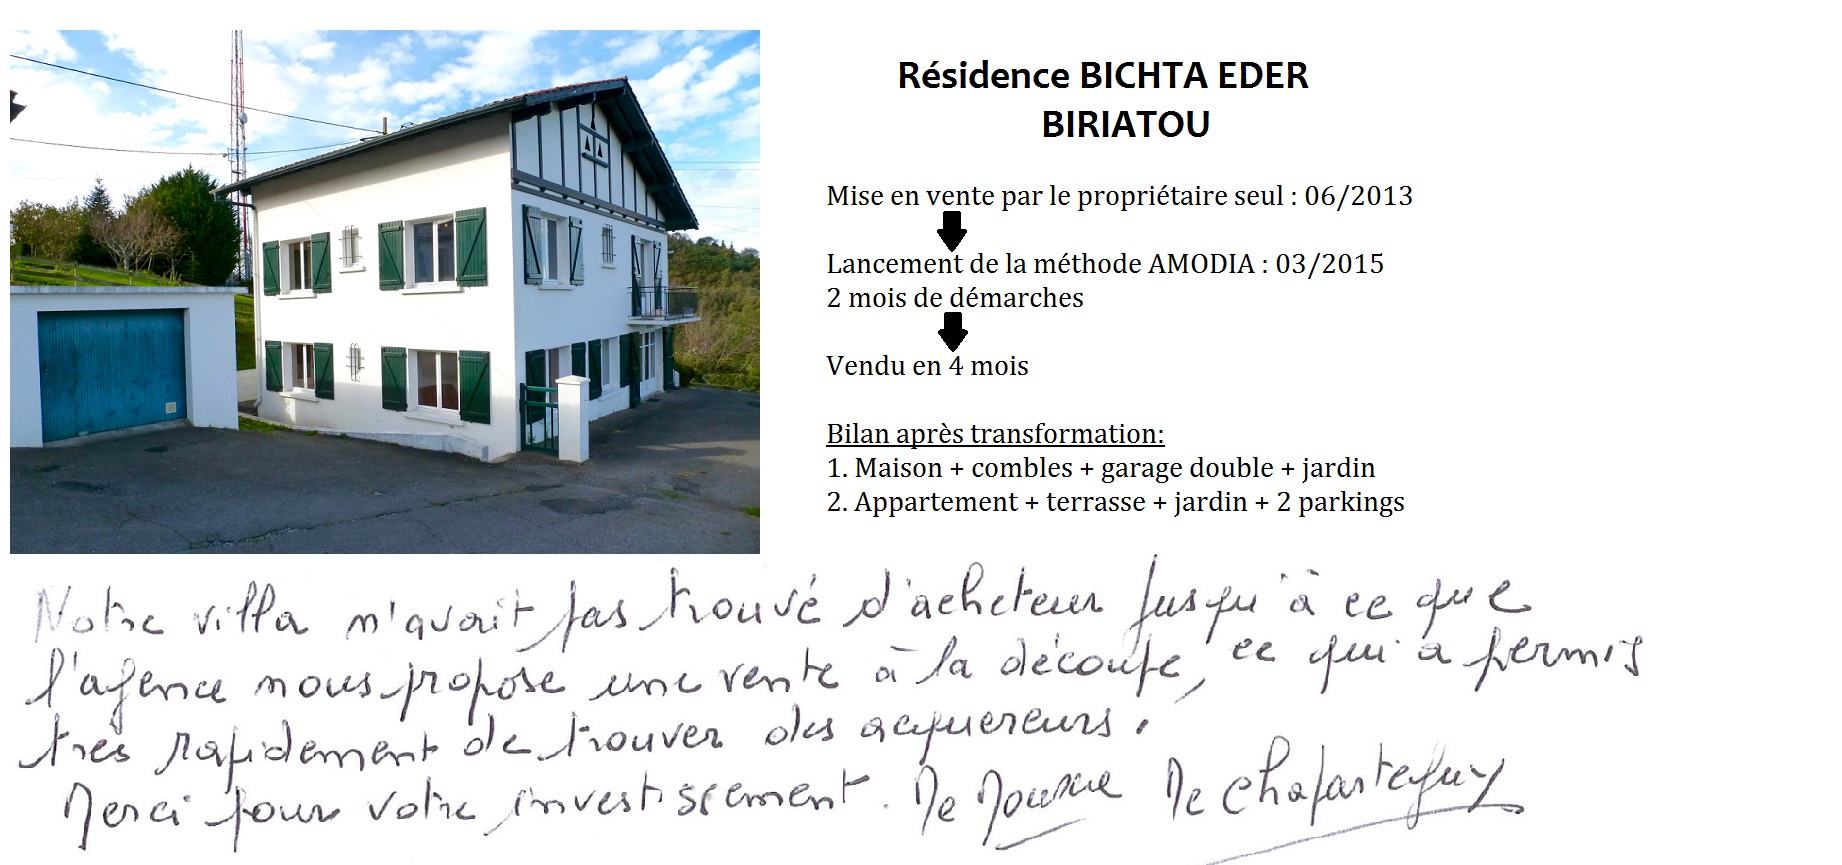 Résidence BICHTA EDER
BIRIATOU
Mise en vente par le propriétaire seul : 06/2013
Lancement de la méthode AMODIA : 03/2015
2 mois de démarches
Vendu en 4 mois
Bilan après transformation:
1. Maison + combles + garage double + jardin
2. Appartement + terrasse + jardin + 2 parkings
Notre villa n'avait pas trouvé d'acheteur jusqu'à ce que
l'agence nous propose une vente à la découpe, ce qui a permis
très rapidement de trouver des acquereurs.
Merci pour votre investissement. Me Me